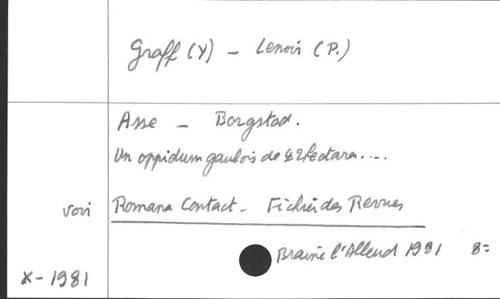 Graff (Y) - Lenoir (P.)
Asse - Borgstad.
Un oppidum gaulois de hectares...
voir Romana Contact - Fichier des Revues
Braine l'Alleud 1981 8=
X-1981